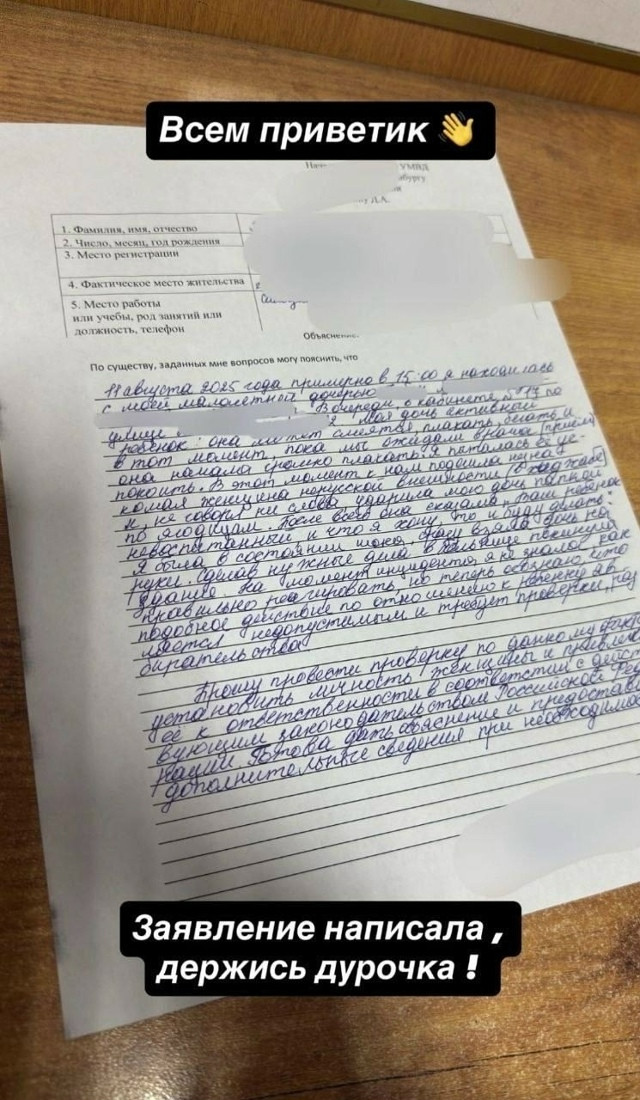 Всем приветик 👋
УМВД
Д.А.
1. Фамилия, имя, отчество
2. Число, месяц, год рождения
3. Место регистрации
4. Фактическое место жительства
5. Место работы
или учебы, род занятий или
должность, телефон
Объяснение.
По существу, заданных мне вопросов могу пояснить, что
11 августа 2025 года примерно в 15:00 я находилась
с моей малолетней дочерью
В очереди, о кабинета № 17 по
улице Моя дочь активный
ребенок: она может смеятся, плакать, бегать и
в тот момент, пока мы ожидали врача (прием)
она начала громко плакать. Я пыталась ее ус-
покоить. В этот момент к нам подошла незна-
комая женщина нерусской внешности (в хиджабе)
и, не говоря ни слова ударила мою дочь по
по ягодицам. После всего она сказала: ребенок
невоспитанный и что я хочу, то и буду делать.
Я была в состоянии шока, взяла дочь на
руки. Сделав нужные дела в больнице покинула
здание. На момент инцидента я не знала, как
правильно реагировать, но теперь осознаю, что
подобное действие по отношению к ребенку яв
ляется недопустимым и требует проверки, раз
бирательства.
Прошу провести проверку по данному факту
установить личность женщины и привлечь
ее к ответственности в соответствии с дейст
вующим законодательством Российской Феде
рации. Готова дать объяснение и предостав
дополнительные сведения при необходимо
Заявление написала ,
держись дурочка !